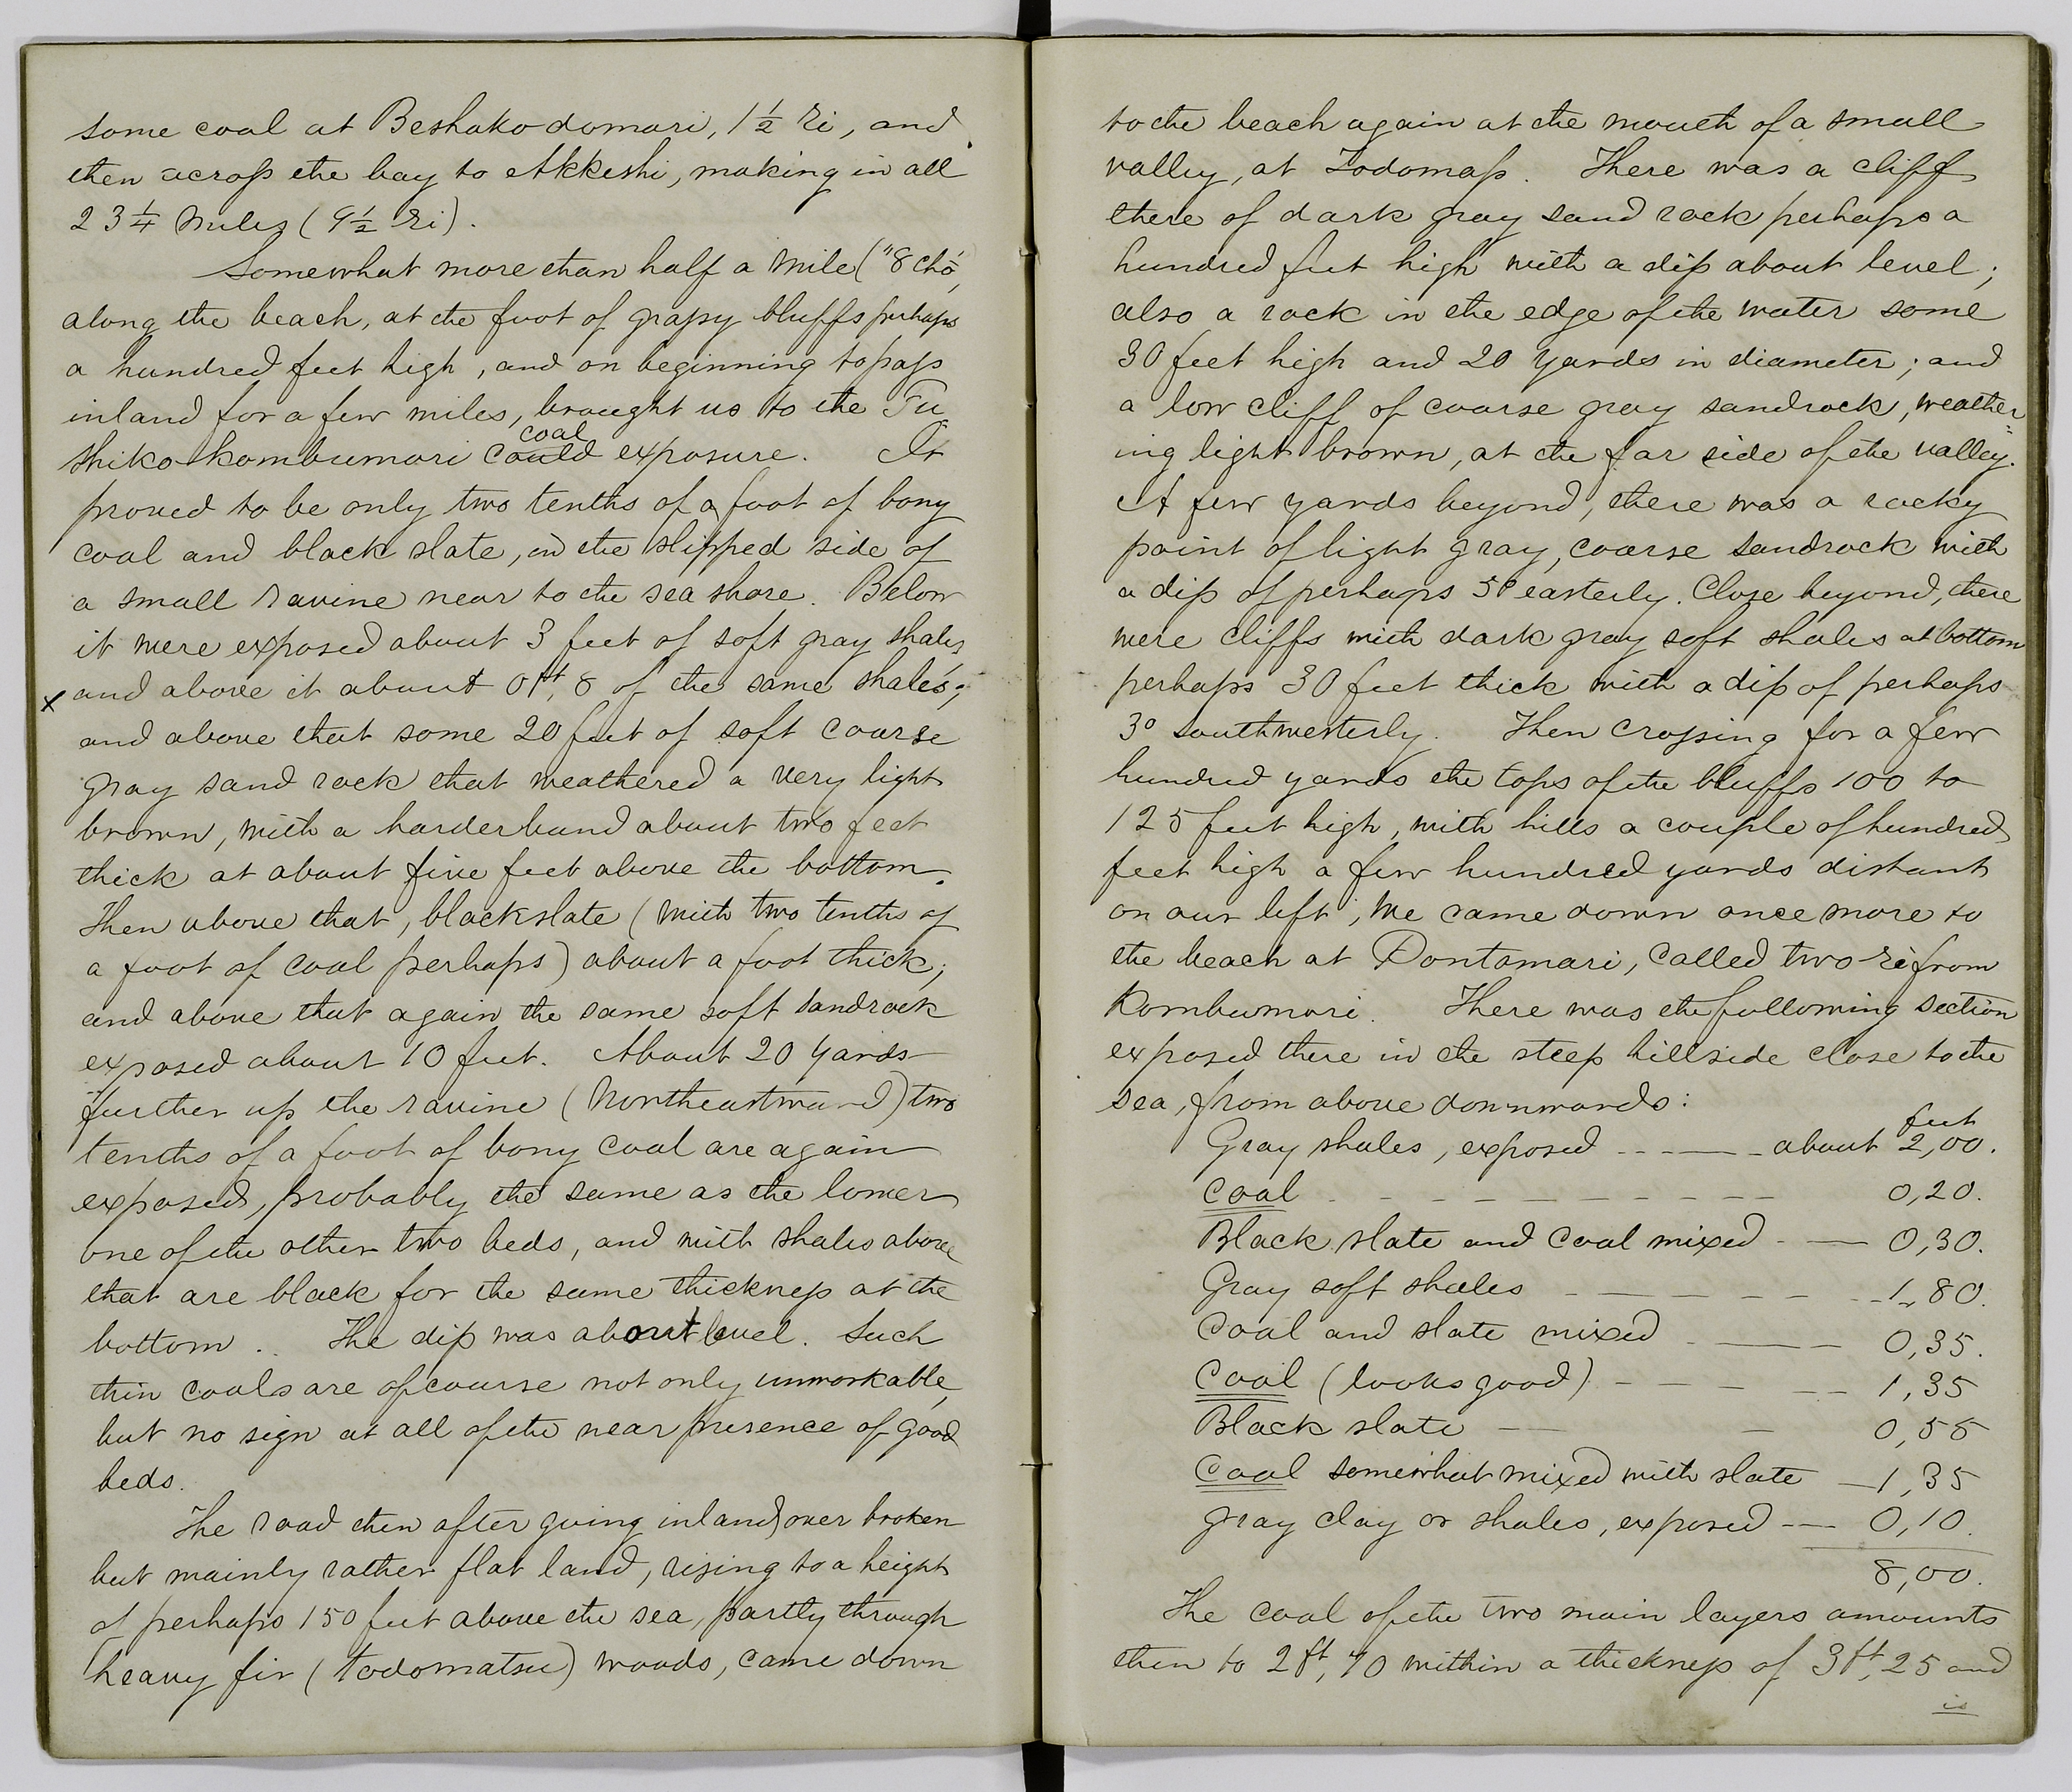 some coal at Beshakodomari, 1½ ri, and
then across the bay to Akkeshi, making in all
23¼ miles (9½ ri).
Somewhat more than half a mile ("8 chō"
along the beach, at the foot of grassy bluffs perhaps
a hundred feet high, and on beginning to pass
inland for a few miles, brought us to the Fu
coal
shiko-kombumori could exposure. It
proved to be only two tenths of a foot of bony
coal and black slate, in the slipped side of
a small ravine near to the sea shore. Below
it were exposed about 3 feet of soft gray shales
x and above it about 0ft,8 of the same shales;
and above that some 20 feet of soft coarse
gray sand rock that weathered a very light
brown, with a harder band about two feet
thick at about five feet above the bottom.
Then above that, black slate (with two tenths of
a foot of coal perhaps) about a foot thick;
and above that again the same soft sandrock
exposed about 10 feet. About 20 yards
further up the ravine (northeastward) two
tenths of a foot of bony coal are again
exposed, probably the same as the lower
one of the other two beds, and with shales above
that are black for the same thickness at the
bottom. The dip was about level. Such
thin coals are of course not only unworkable,
but no sign at all of the near presence of good
beds.
The road then after going inland over broken
but mainly rather flat land, rising to a height
of perhaps 150 feet above the sea, partly through
heavy fir (todomatsu) woods, came down
to the beach again at the mouth of a small
valley, at Todomass. There was a cliff
there of dark gray sand rock perhaps a
hundred feet high with a dip about level;
also a rock in the edge of the water some
30 feet high and 20 yards in diameter; and
a low cliff of coarse gray sandrock, weather=
ing light brown, at the far side of the valley.
A few yards beyond, there was a rocky
point of light gray, coarse sandrock with
a dip of perhaps 5° easterly. Close beyond, there
were cliffs with dark gray soft shales at bottom
perhaps 30 feet thick with a dip of perhaps
3° southwesterly. Then crossing for a few
hundred yards the tops of the bluffs 100 to
125 feet high, with hills a couple of hundred
feet high a few hundred yards distant
on our left, we came down once more to
the beach at Pontomari, called two ri from
Kombumori. There was the following section
exposed there in the steep hillside close to the
sea, from above downwards:
feet
Gray shales, exposed - - - — - about 2,00.
Coal - - - - - - - - - - 0,20.
Black slate and coal mixed - — 0,30.
Gray soft shales - - - - - - - 1,80.
Coal and slate mixed - — — 0,35.
Coal (looks good) - - - - - 1,35
Black slate — — 0,55
Coal somewhat mixed with slate — 1,35
Gray clay or shales, exposed - — 0,10.
8,00.
The coal of the two main layers amounts
then to 2ft,70 within a thickness of 3ft,25 and
is